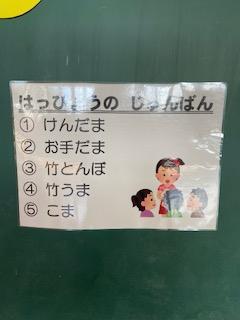 はっぴょうの じゅんばん
① けんだま
② お手だま
③ 竹とんぼ
④ 竹うま
⑤ こま